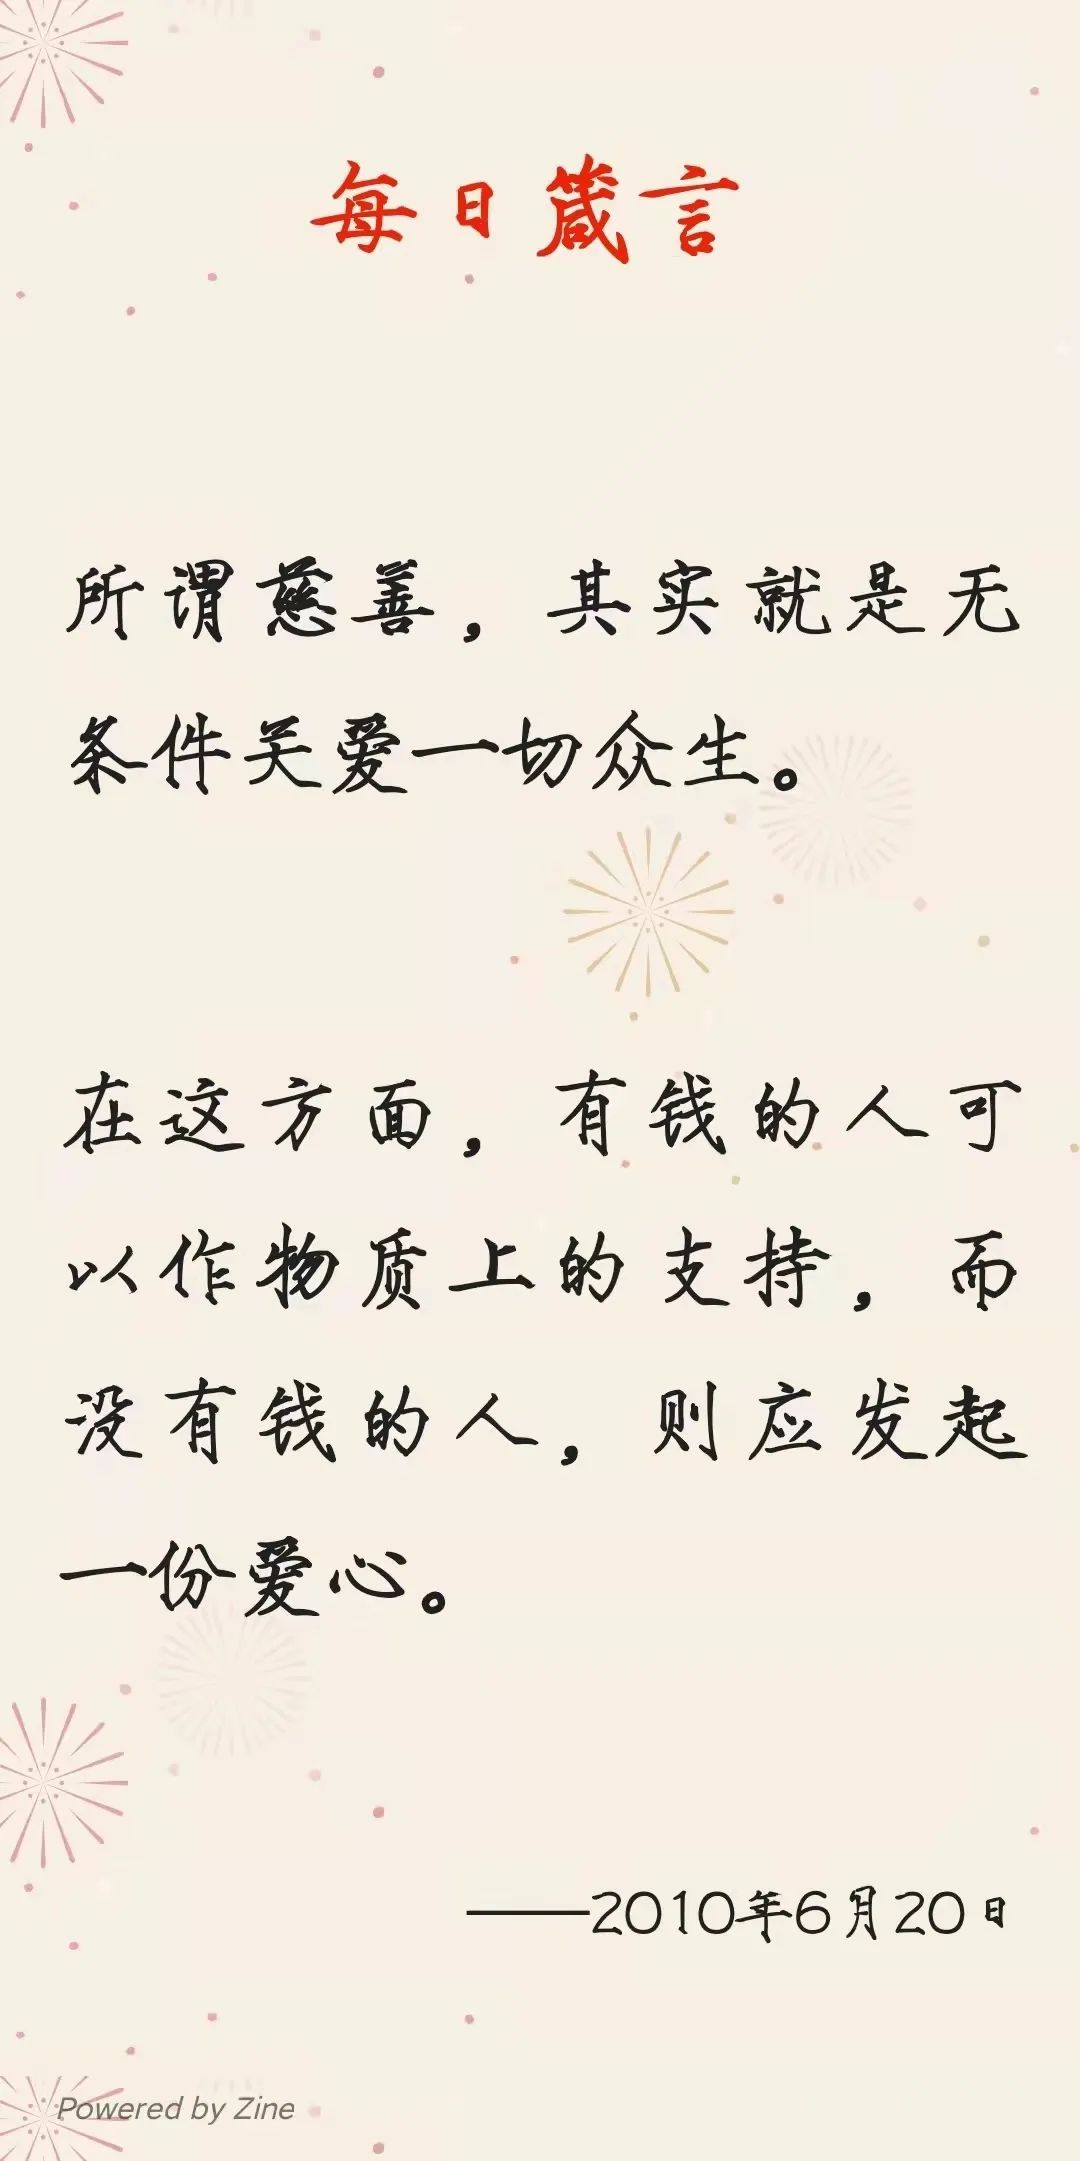 每日箴言
所谓慈善，其实就是无
条件关爱一切众生。
在这方面，有钱的人可
以作物质上的支持，而
没有钱的人，则应发起
一份爱心。
——2010年6月20日
Powered by Zine